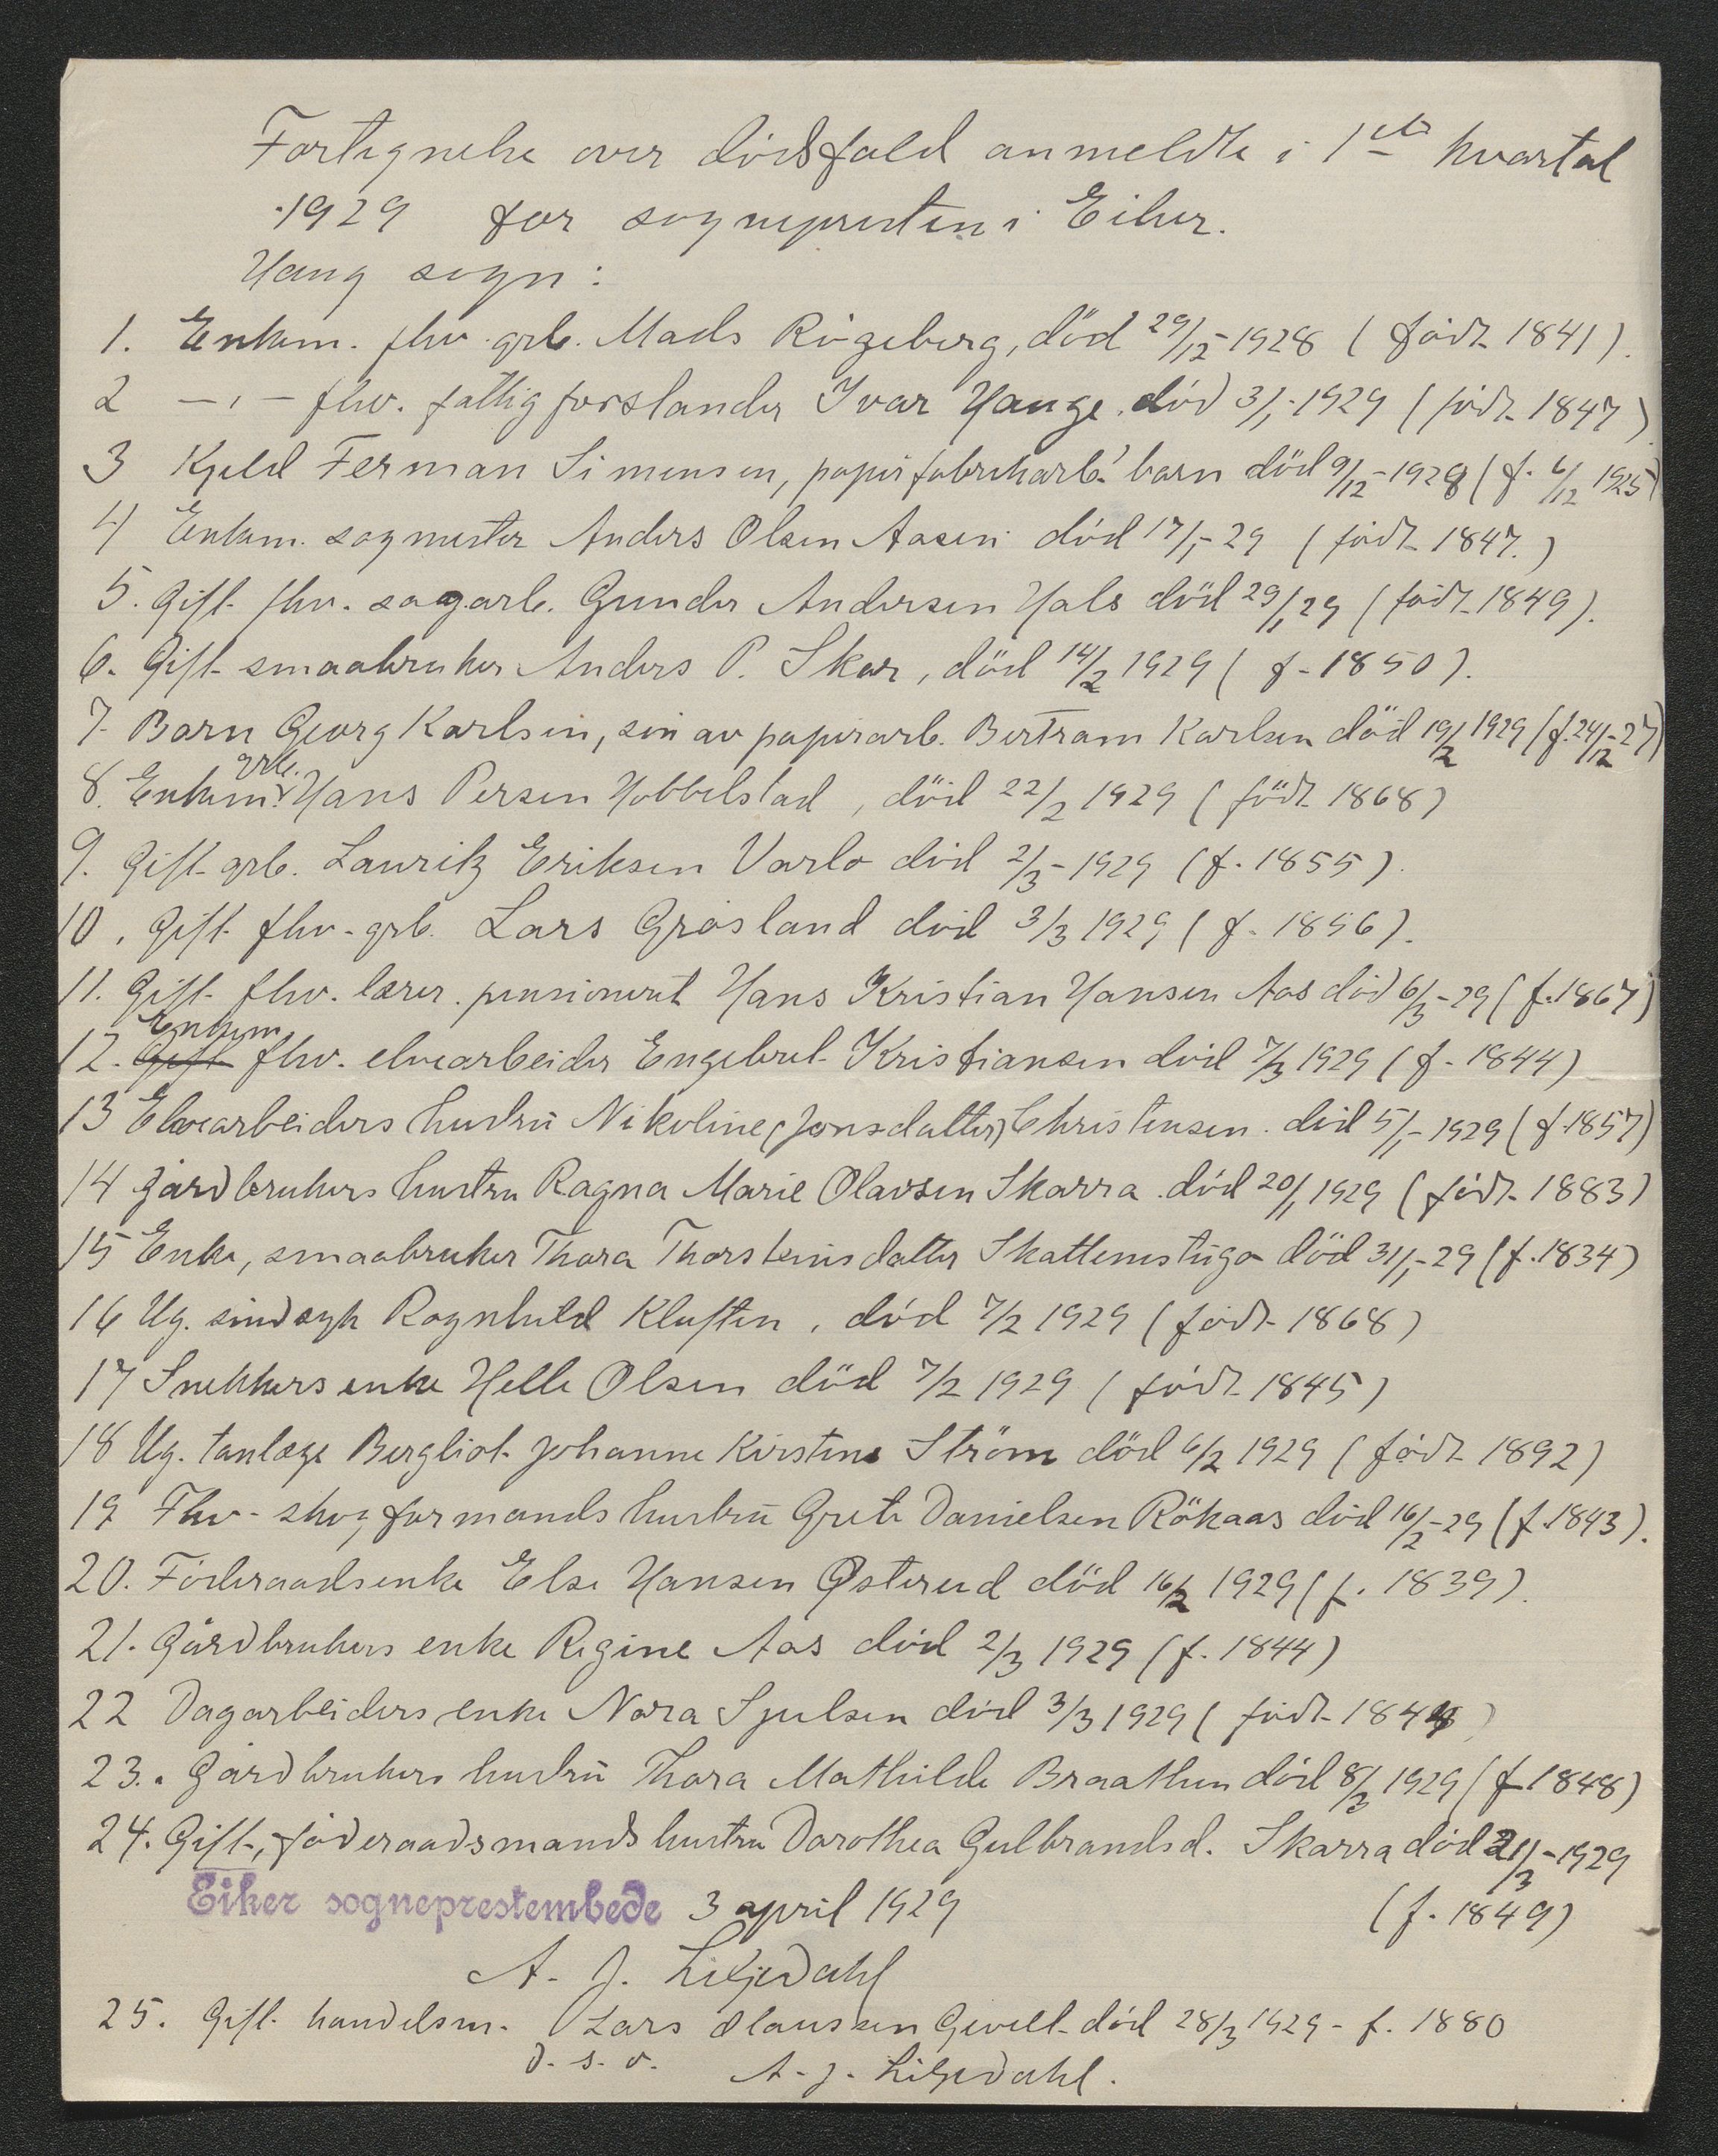 Fortegnelse over dödsfald anmeldte i 1ste kvartal
1929 for sogneprestens i Eiker.
Haug sogn:
1. Enkem. fhv. grb. Mads Rögeberg, död 29/12-1928 (födt 1841).
2 -,- fhv. fattigforstander Ivar Hauge. död 3/1-1929 (födt 1847)
3 Kjeld Ferman Simensen, papirfabrikarb.' barn död 9/12-1928 (f. 6/12 1925)
4 Enkem. sagmester Anders Olsen Aasen död 17/1-29 (födt 1847.)
5. Gift fhv. sagarb. Gunder Andersen Hals död 29/1 29 (födt 1849).
6. Gift smaabruker Anders P. Skar, död 14/2 1929 (f. 1850).
7. Barn Georg Karlsen, sön av papirarb. Bertram Karlsen död 19/2 1929 (f. 24/12-27)
8. Enkem. grb. Hans Persen Hobbelstad, död 22/2 1929 (födt 1868)
9. Gift grb. Lauritz Eriksen Varlo död 2/3-1929 (f. 1855).
10. Gift fhv. grb. Lars Grøsland död 3/3 1929 (f. 1856).
11. Gift fhv. lærer. pensionert Hans Kristian Hansen Aas död 6/3-29 (f. 1867)
12. Gift Enkem fhv. elvearbeider Engebret Kristiansen död 7/3 1929 (f. 1844)
13 Elvearbeiders hustru Nikoline (Jonsdatter) Christensen. död 5/1-1929 (f. 1857)
14 Gårdbrukers hustru Ragna Marie Olavsen Skarra. död 20/1 1929 (födt 1883)
15 Enke, smaabruker Thora Thorsteinsdatter Skattemstugo död 31/1-29 (f. 1834)
16 Ug. sindsyk Ragnhild Kluften, död 7/2 1929 (födt 1868)
17 Snekkers enke Helle Olsen död 7/2 1929 (födt 1845)
18 Ug. tanlæge Bergliot Johanne Kirstine Ström död 6/2 1929 (födt 1892)
19 Fhv. skogformands hustru Grete Danielsen Rökaas död 16/2-29 (f. 1843).
20. Föderaadsenke Else Hansen Østerud död 16/2 1929 (f. 1839).
21. Gårdbrukers enke Regine Aas död 2/3 1929 (f. 1844)
22 Dagarbeiders enke Nora Sjulsen död 3/3 1929 (födt 1848)
23. Gårdbrukers hustru Thora Mathilde Braathen död 8/3 1929 (f. 1848)
24. Gift, föderaadsmands hustru Dorothea Gulbrandsd. Skarra död 21/3-1929
(f. 1849)
Eiker sogneprestembede 3 april 1929
A. J. Liljedahl
25. Gift handelsm. Lars Olaussen Gevelt död 28/3 1929 - f. 1880
d. s. o.
A. J. Liljedahl.